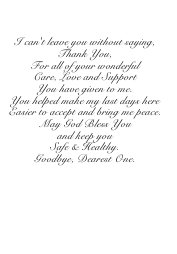 I can't leave you without saying,
Thank You,
For all of your wonderful
Care, Love and Support
You have given to me.
You helped make my last days here
Easier to accept and bring me peace.
May God Bless You
and keep you
Safe & Healthy.
Goodbye, Dearest One.